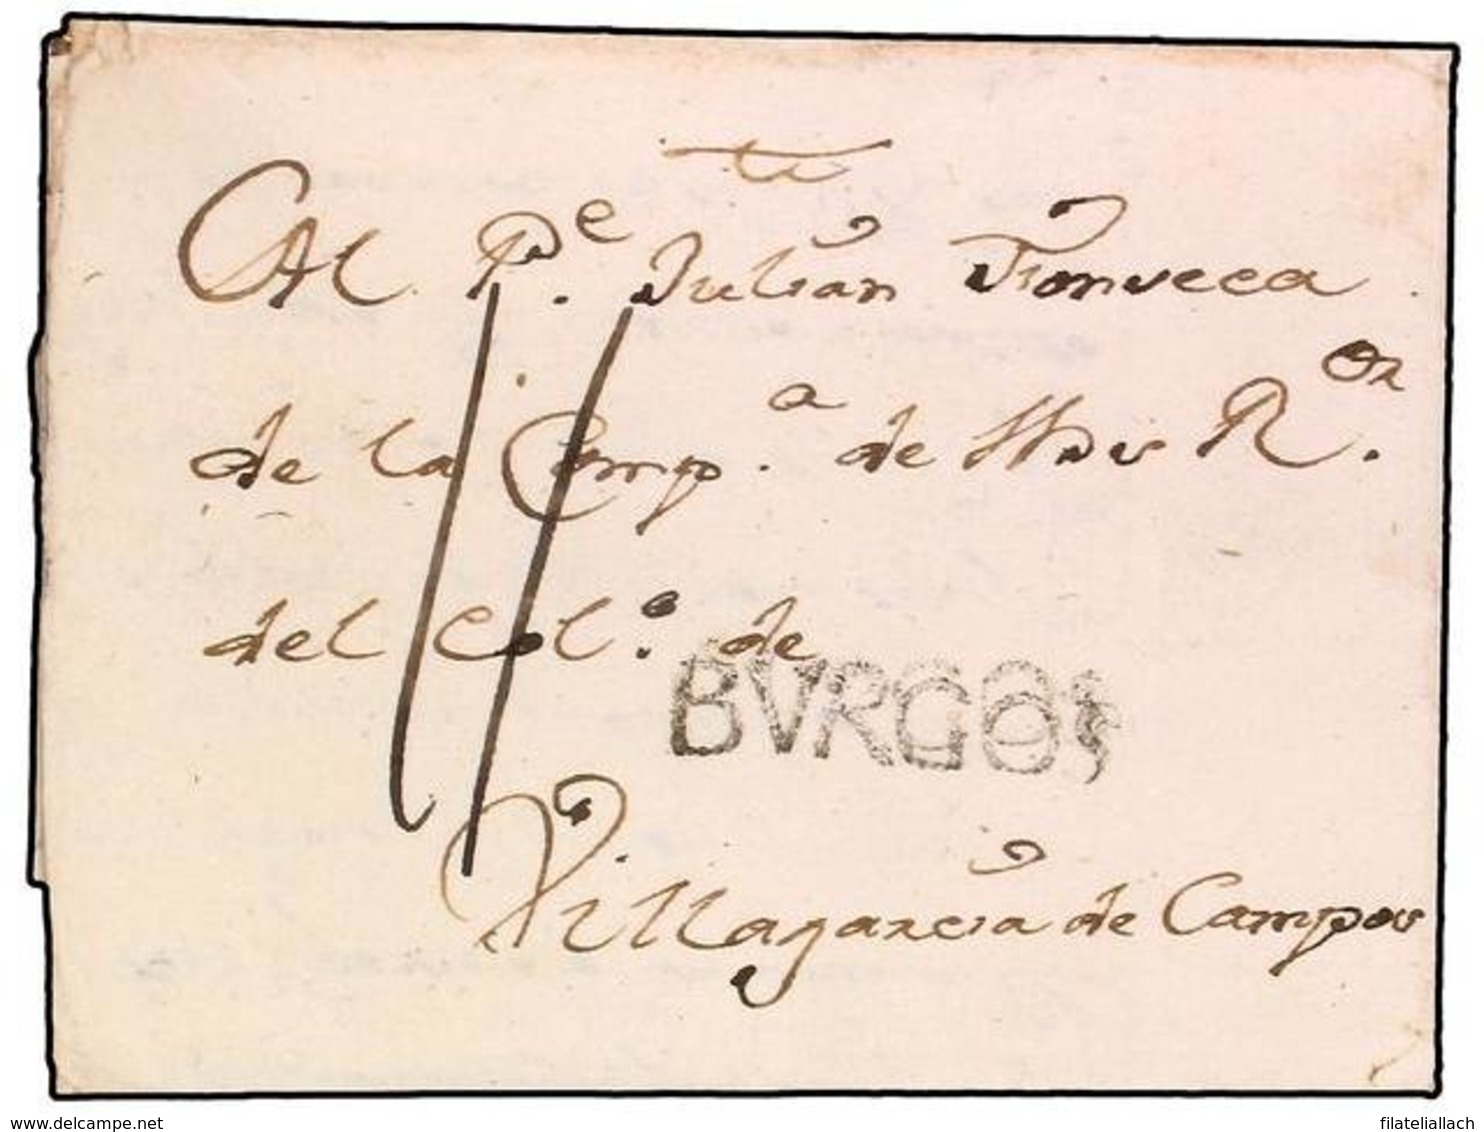 Al P.e Julian Fonseca
de la Comp.a de Jhs R.or
del Col.o de
BVRGOS
Villagarcia de Campos
www.delcampe.net
filateliallach